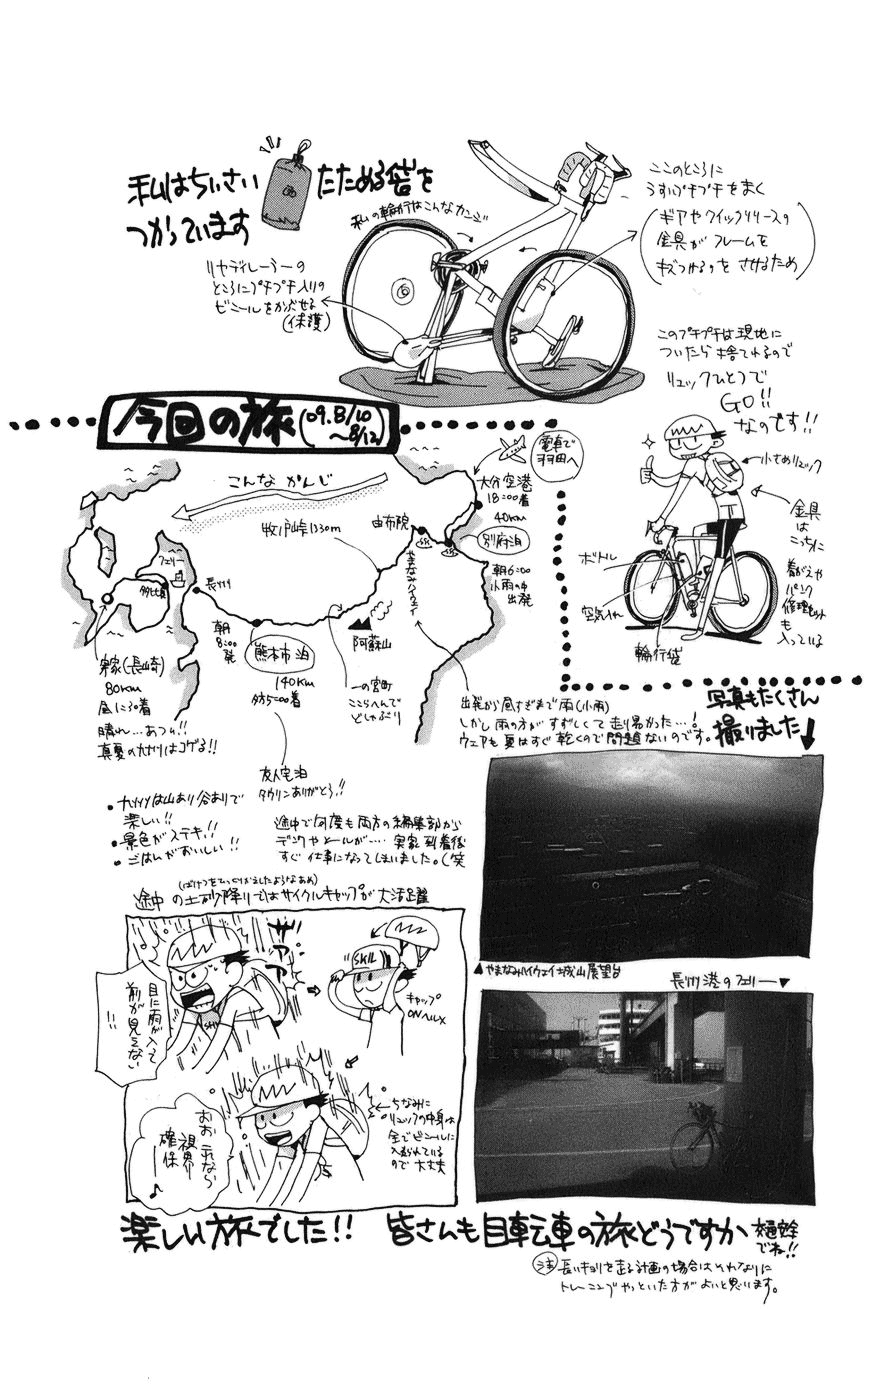 私はちいさい たためる袋を
つかっています
私の輪行はこんなカンジ
ここのところに
うすいプチプチをまく
(ギアやクイックリリースの
金具がフレームを
キズつけるのをさけるため)
リヤディレーラーの
ところにプチプチ入りの
ビニールをかぶせる
(保護)
このプチプチは現地に
ついたら捨てれるので
リュックひとつで
GO!!
なのです!!
小さめリュック
金具
は
こっちに
着がえや
パンク
修理セット
も
入っている
ボトル
空気入れ
輪行袋
今回の旅(09.8/10
～8/12)
こんな かんじ
電車で
羽田へ
大分空港
18:00着
40km
別府泊
朝6:00
小雨の中
出発
由布院
やまなみハイウェイ
牧ノ戸峠1330m
阿蘇山
一の宮町
ここらへんで
どしゃぶり
熊本市 泊
140km
夕方5:00着
朝
8:00
発
長洲
フェリー
多比良
実家(長崎)
80km
昼に到着
晴れ…あつい!!
真夏の九州はコゲる!!
出発から昼すぎまで雨(小雨)
しかし雨の方がすずしくて走り易かった…!
ウェアも夏はすぐ乾くので問題ないのです。
友人宅泊
タウリンありがとう!!
・九州は山あり谷ありで
楽しい!!
・景色がステキ!!
・ごはんがおいしい!!
途中で何度も両方の編集部から
デンワやメールが…. 実家到着後
すぐ仕事になってしまいました。(笑
写真もたくさん
撮りました
(ばけつをひっくりかえしたようなあめ)
途中の土砂降りではサイクルキャップが大活躍
ザアアア
目に雨が入って
前が見えない
!!
SKIL
キャップ
ONヘルメ
おおこれなら
視界
確保♪
ちなみに
リュックの中身は
全てビニールに
入れられている
ので大丈夫
▲やまなみハイウェイ城山展望台
長洲港のフェリー▼
楽しい旅でした!! 皆さんも自転車の旅どうですか 交通安全
でね!!
注 長いキョリを走る計画の場合はそれなりに
トレーニングやっといた方がよいと思います。